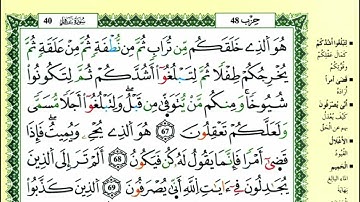 40 سُورَةُ غَافِر حِزْب 48
هُوَ اَلذِے خَلَقَكُم مِّن تُرَابٖ ثُمَّ مِن نُّطْفَةٖ ثُمَّ مِنْ عَلَقَةٖ ثُمَّ
يُخْرِجُكُمْ طِفْلاٗ ثُمَّ لِتَبْلُغُوٓاْ أَشُدَّكُمْ ثُمَّ لِتَكُونُواْ
شُيُوخاٗ وَمِنكُم مَّنْ يُّتَوَفّ۪ىٰ مِن قَبْلُ وَلِتَبْلُغُوٓاْ أَجَلاٗ مُّسَمّىٗ
وَلَعَلَّكُمْ تَعْقِلُونَ 67 هُوَ اَلذِے يُحْيِۦ وَيُمِيتُ فَإِذَا
قَضَىٰٓ أَمْراٗ فَإِنَّمَا يَقُولُ لَهُۥ كُن فَيَكُونُ 68 أَلَمْ تَرَ إِلَى اَلذِينَ
يُجَٰدِلُونَ فِےٓ ءَايَٰتِ اِللَّهِ أَنّ۪ىٰ يُصْرَفُونَ 69 اَلذِينَ كَذَّبُواْ
لِتَبْلُغُوا أَشُدَّكُمْ
كَمَالَ عَقْلِكُمْ
وَقُوَّتِكُمْ
قَضَى أَمْرًا
أَرَادَهُ
أَنَّى يُصْرَفُونَ
كَيْفَ يُعْدَلُ
بِهِمْ عَنِ الحَقِّ
الأَغْلَالُ